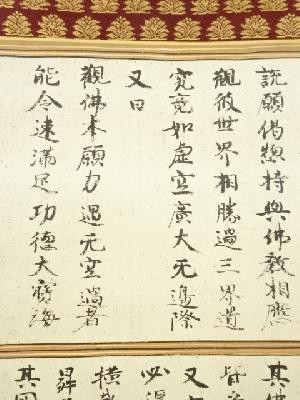 説願偈惣持與佛教相應
觀彼世界相勝過三界道
究竟如虚空廣大无邊際
又曰
觀佛本願力遇无空過者
能令速滿足功德大寶海
其佛
皆
又
必得
横
昇
其